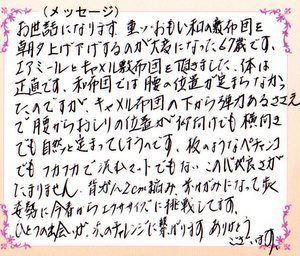 (メッセージ)
お世話になります。重ッ・おもい和の敷布団を
朝夕上げ下げするのが大変になった67歳です。
エアミールとキャメル敷布団を頂きました。体は
正直です。和布団では腰の位置が定まらなかっ
たのですが、キャメル布団の下から弾力あるささえ
で腰からおしりの位置が仰向けでも横向き
でも自然と定まってしまうのです。板のようなペチャンコ
でもフカフカで沈むマットでもない
たまりません。背が2cm縮み、前かがみになって歩く
姿勢に今春からエクササイズに挑戦してます。
ひとつの出会いが次のチャレンジに繋がります。ありがとう
ございます。